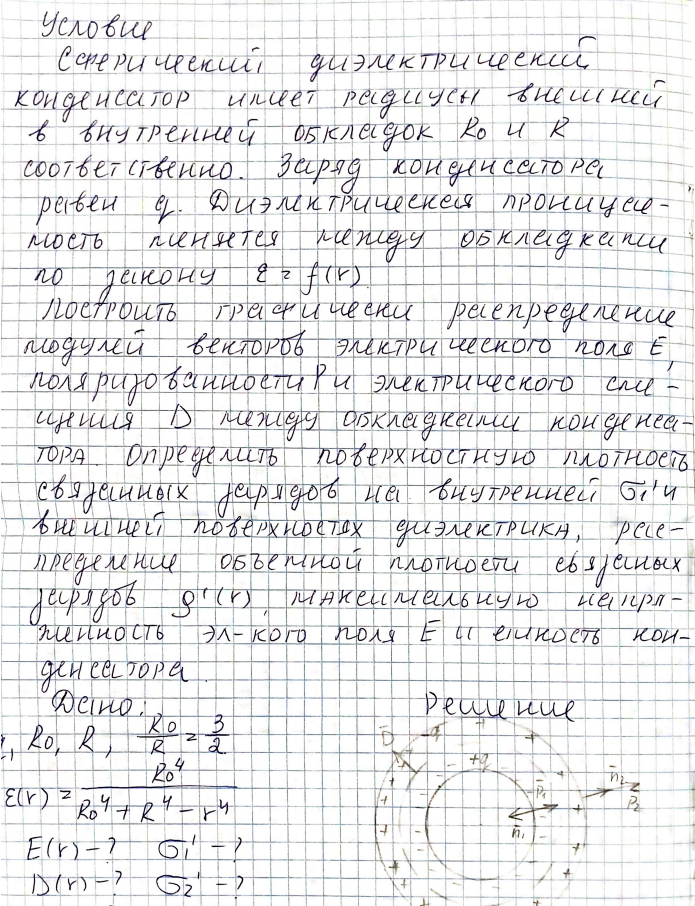 Условие
Сферический диэлектрический
конденсатор имеет радиусы внешней
в внутренней обкладок Ro и R
соответственно. Заряд конденсатора
равен q. Диэлектрическая проницае-
мость меняется между обкладками
по закону ε = f(r)
Построить графически распределение
модулей векторов электрического поля E,
поляризованности P и электрического сме-
щения D между обкладками конденса-
тора Определить поверхностную плотность
связанных зарядов на внутренней σ1' и
внешней поверхностях диэлектрика, рас-
пределение объемной плотности связаных
зарядов ρ'(r), максимальную напря-
женность эл-кого поля E и емкость кон-
денсатора
Дано: Решение
q, Ro, R, Ro/R = 3/2
ε(r) = Ro⁴/(Ro⁴ + R⁴ − r⁴)
E(r) − ? σ1' − ?
D(r) − ? σ2' − ?
D -q +q
P1 n1 n2 P2